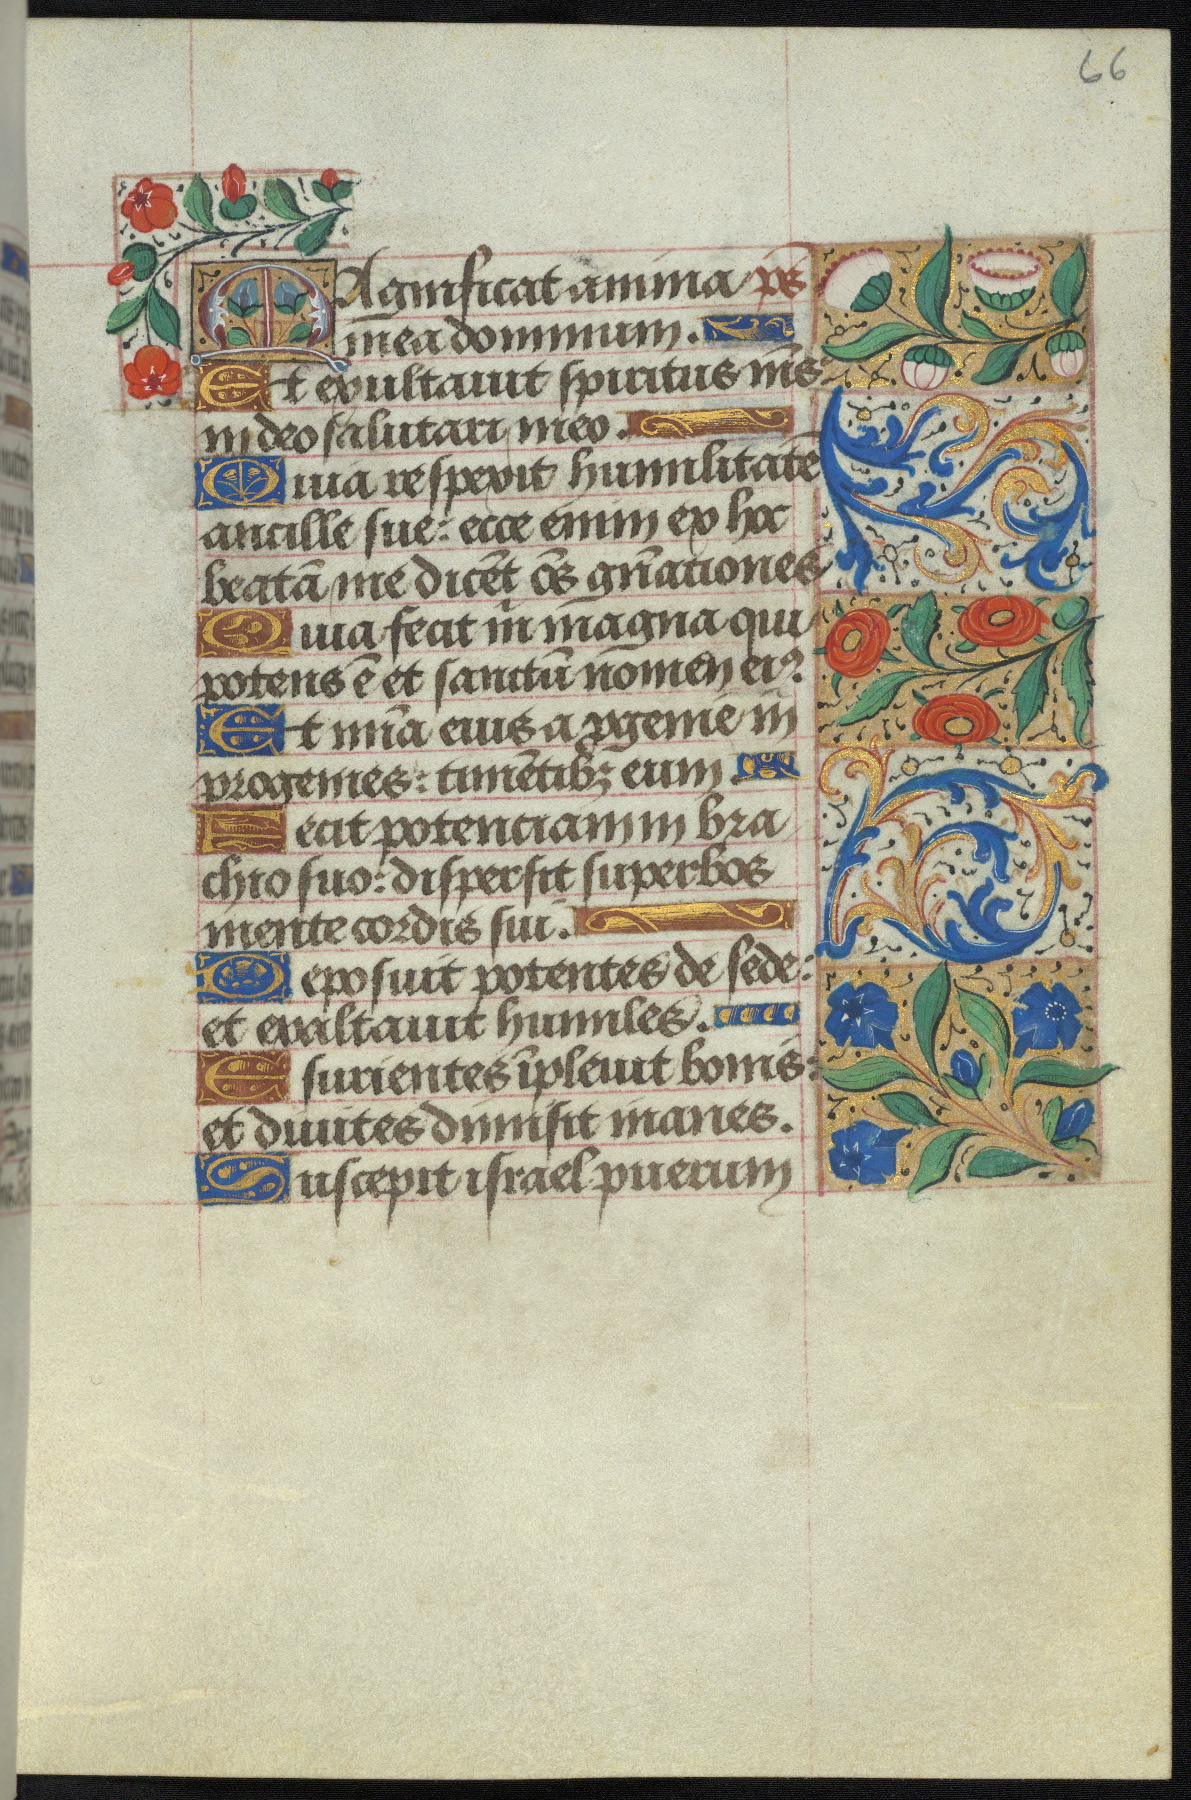 66
MAgnificat anima ps
mea dominum.
Et exultauit spiritus m̄s:
in deo salutari meo.
Quia respexit humilitatē
ancille sue: ecce enim ex hoc
beatā me dicēt oēs gn̄ationes
Quia fecit m̄ magna qui
potens ē et sanctū nomen eiꝰ
Et mīa eius a ꝓgenie in
progenies: timētibꝫ eum.
Fecit potenciam in bra
chio suo: dispersit superbos
mente cordis sui.
Deposuit potentes de sede:
et exaltauit humiles.
Esurientes īpleuit bonis:
et diuites dimisit inanes.
Suscepit israel puerum